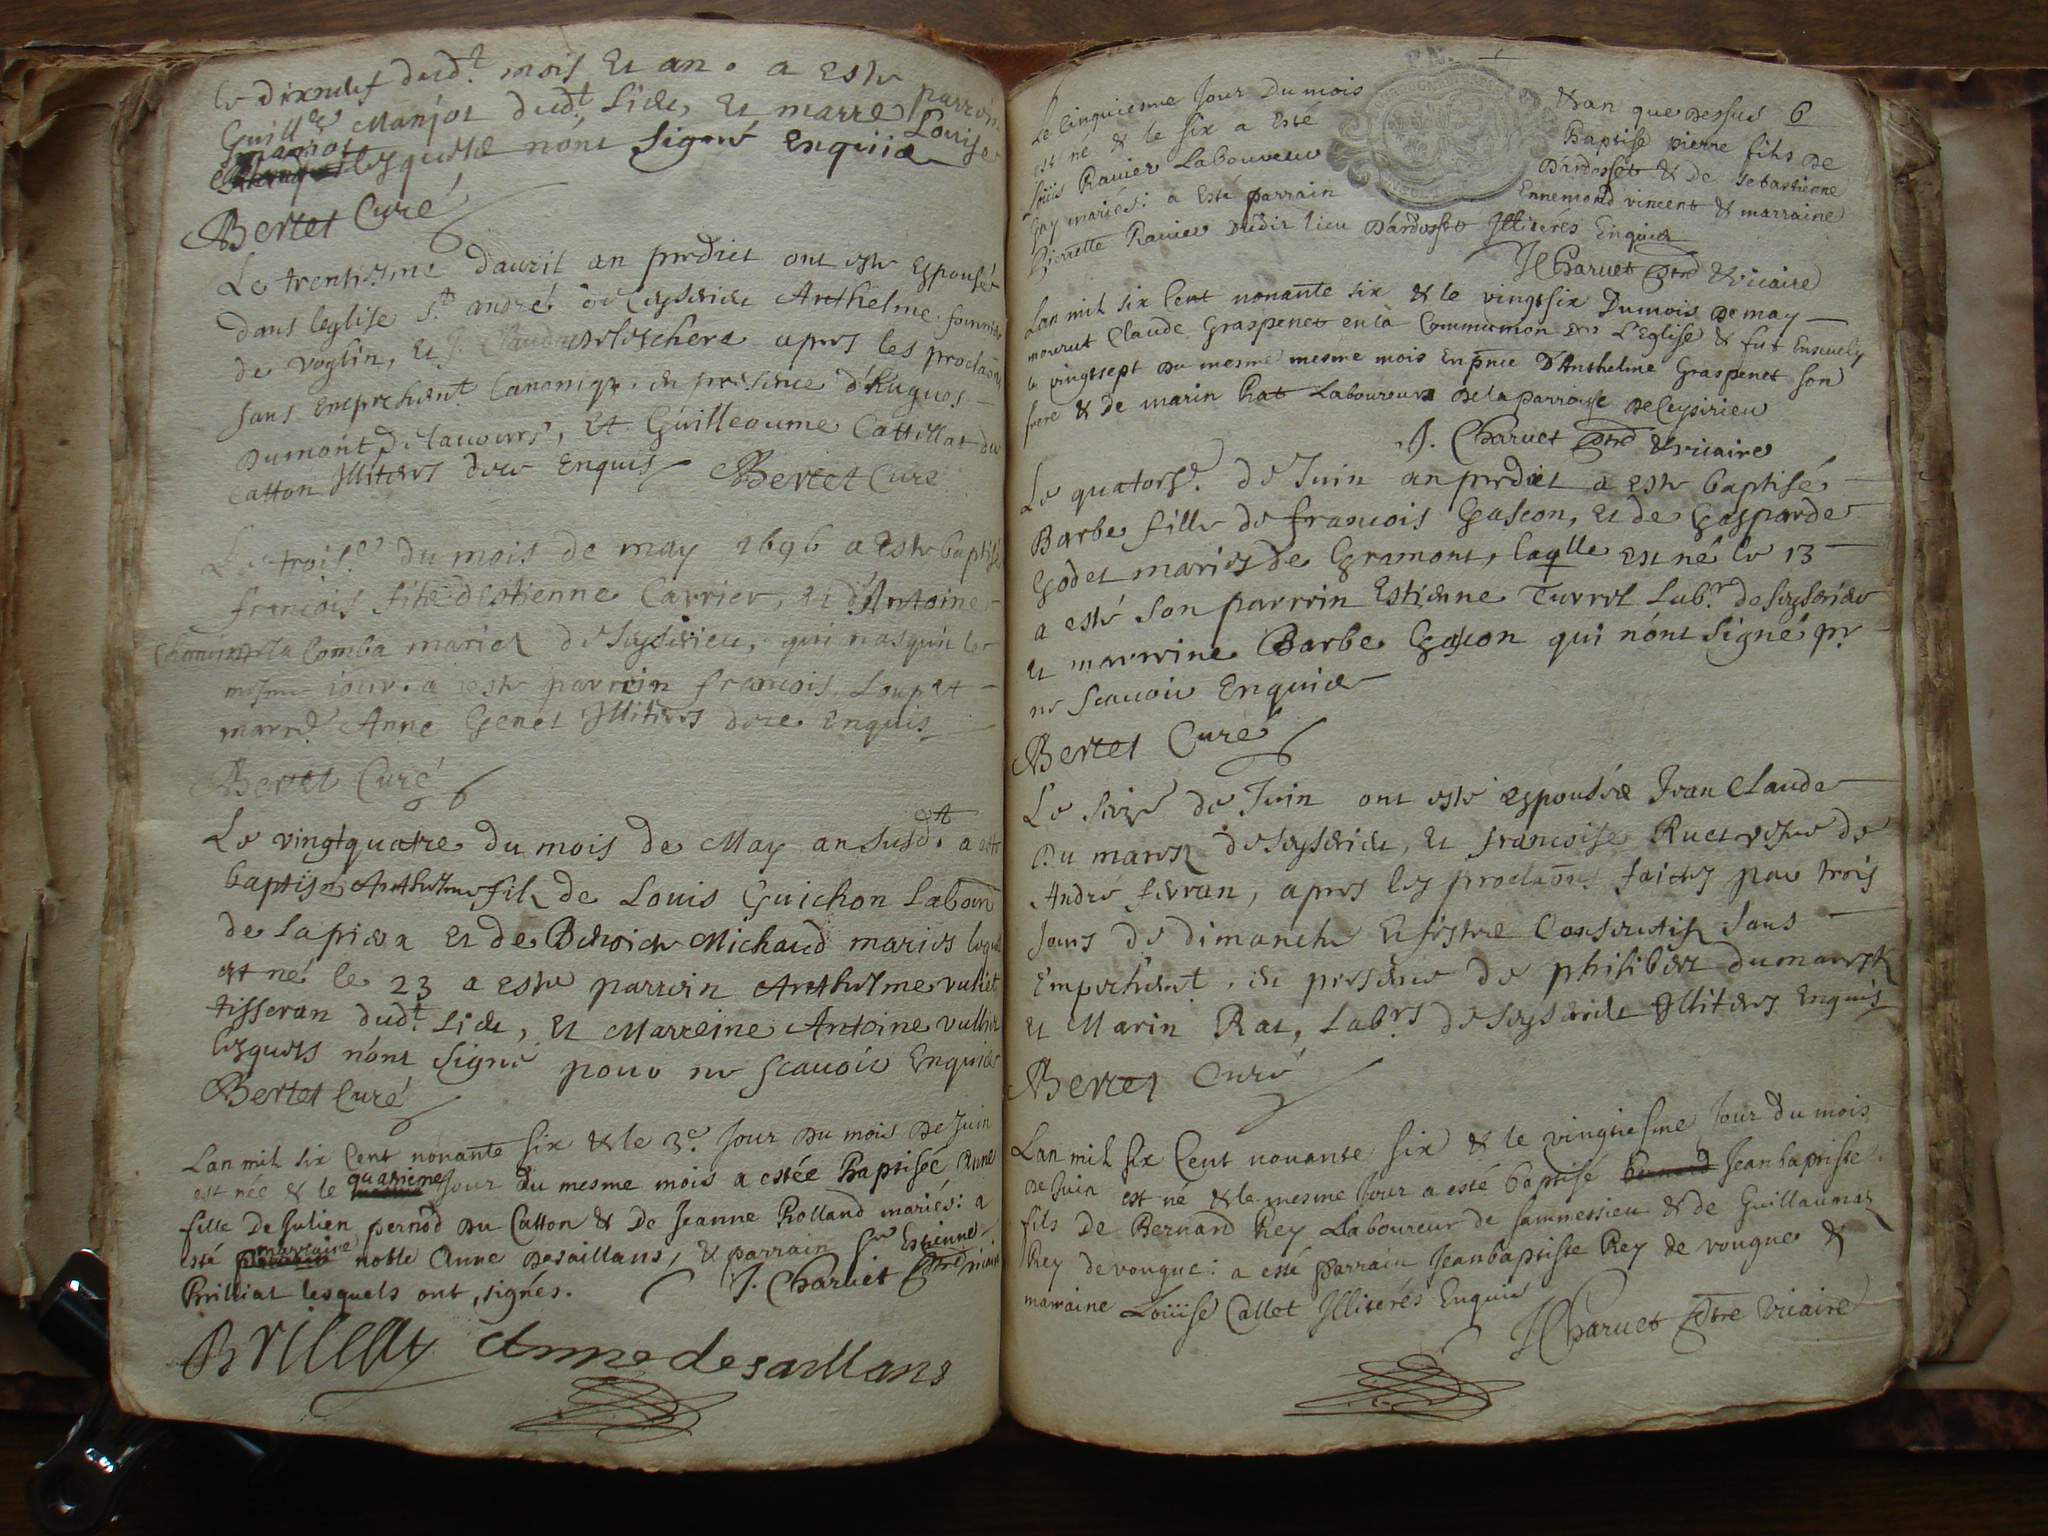 le dixneuf dud.t mois Et an. a este parrein
Guill.e Manjot dud.t Lieu, Et marre Louise
manjot lesquelz n'ont signé enquis
Bertet Curé
Le trentiesme d'auril an predict ont este Espousés
dans leglise S.t andré de Ceyserieu Anthelme
de voglin, Et apres les proclaons
sans Empechem.t Canoniq. en presence d'Hugues
Dumont de lauours, Et Guilleaume Cattillat du
Catton Illiteres de ce Enquis Bertet Curé
Le trois.e du mois de may 1696 a Este baptisé
francois fils d'Estienne Carrier, et d'Antoine
la Comba mariez de Ceyserieu, qui nasquit le
mesme iour. a este parrein francois Loup et
marr.e Anne Genet Illiteres de ce Enquis
Bertet Curé
Le vingtquatre du mois de May an susd.t a este
baptisé Anthelme fils de Louis Guichon Labour
de la piera Et de Benoite Michaud maries lequel
est né le 23 a este parrein Anthelme vulliet
tisseran dud.t Lieu, Et Marreine Antoine vulliet
lesquels n'ont signé pour ne scauoir Enquis
Bertet Curé
Lan mil six Cent nonante six & le 3.e Jour du mois de Juin
est née & le quatrieme Jour du mesme mois a estée Baptiseé Anne
fille de Julien pernod du Catton & de Jeanne Rolland mariés: a
esté marraine noble Anne Desaillans, & parrain S.r Estienne
Brilliat lesquels ont signés. J. Charuet ptre vicaire
Brilliat Anne desaillans
Le Cinquiesme Jour Du mois & an que Dessus 6
est né & le six a Esté Baptise pierre fils de
Loüis Rauier Laboureur D'ardosset & de sebastienne
Gay mariés: a Esté parrain Ennemond vincent & marraine
Pierrette Rauier Dudit lieu D'ardosset Illiterés Enquis
J Charuet ptre & vicaire
Lan mil six Cent nonante six & le vingtsix Dumois de may
mourut Claude Graspenet en la Communion de L'Eglise & fut Enseuely
le vingtsept du mesme mesme mois En pnce D'Anthelme Graspenet son
frere & de marin Rat Laboureurs de la parroisse de Ceysirieu
J. Charuet ptre & vicaire
Le quators.e de Juin an predict a este baptisé
Barbe fille de francois Gascon, Et de Gasparde
Godet maries de Gramont, laqlle est né le 13
a esté son parrein Estienne Turrel Lab.r de Ceyserieu
Et marreine Barbe Gascon qui n'ont signé pr
ne scauoir Enquis
Bertet Curé
Le seize de Juin ont este espousés Jean Claude
Du marest de Ceyserieu, Et francoise Ruet vesue de
André feuran, apres les proclaons faictes par trois
Jours de dimanche Et festes Consecutifs sans
Empechem.t, en presence de philibert dumarest
Et Marin Rat, Lab.rs de Ceyserieu Illiteres Enquis
Bertet Curé
Lan mil six Cent nonante six & le vingtiesme Jour du mois
de Juin est né & le mesme Jour a esté baptisé bernard Jeanbaptiste
fils de Bernard Rey Laboureur de sammessieu & de Guillaumaz
Rey de vongne: a esté parrain Jeanbaptiste Rey de vongne &
marraine Loüise Callet Illiterés Enquis
J Charuet ptre vicaire